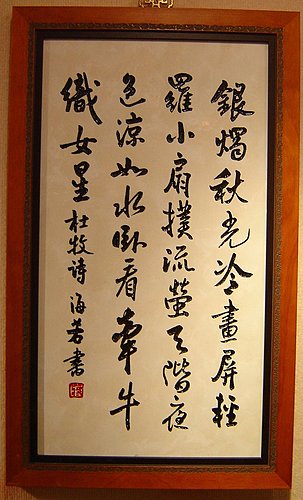 銀燭秋光冷畫屏輕
羅小扇撲流螢天階夜
色涼如水臥看牽牛
織女星杜牧詩海若書